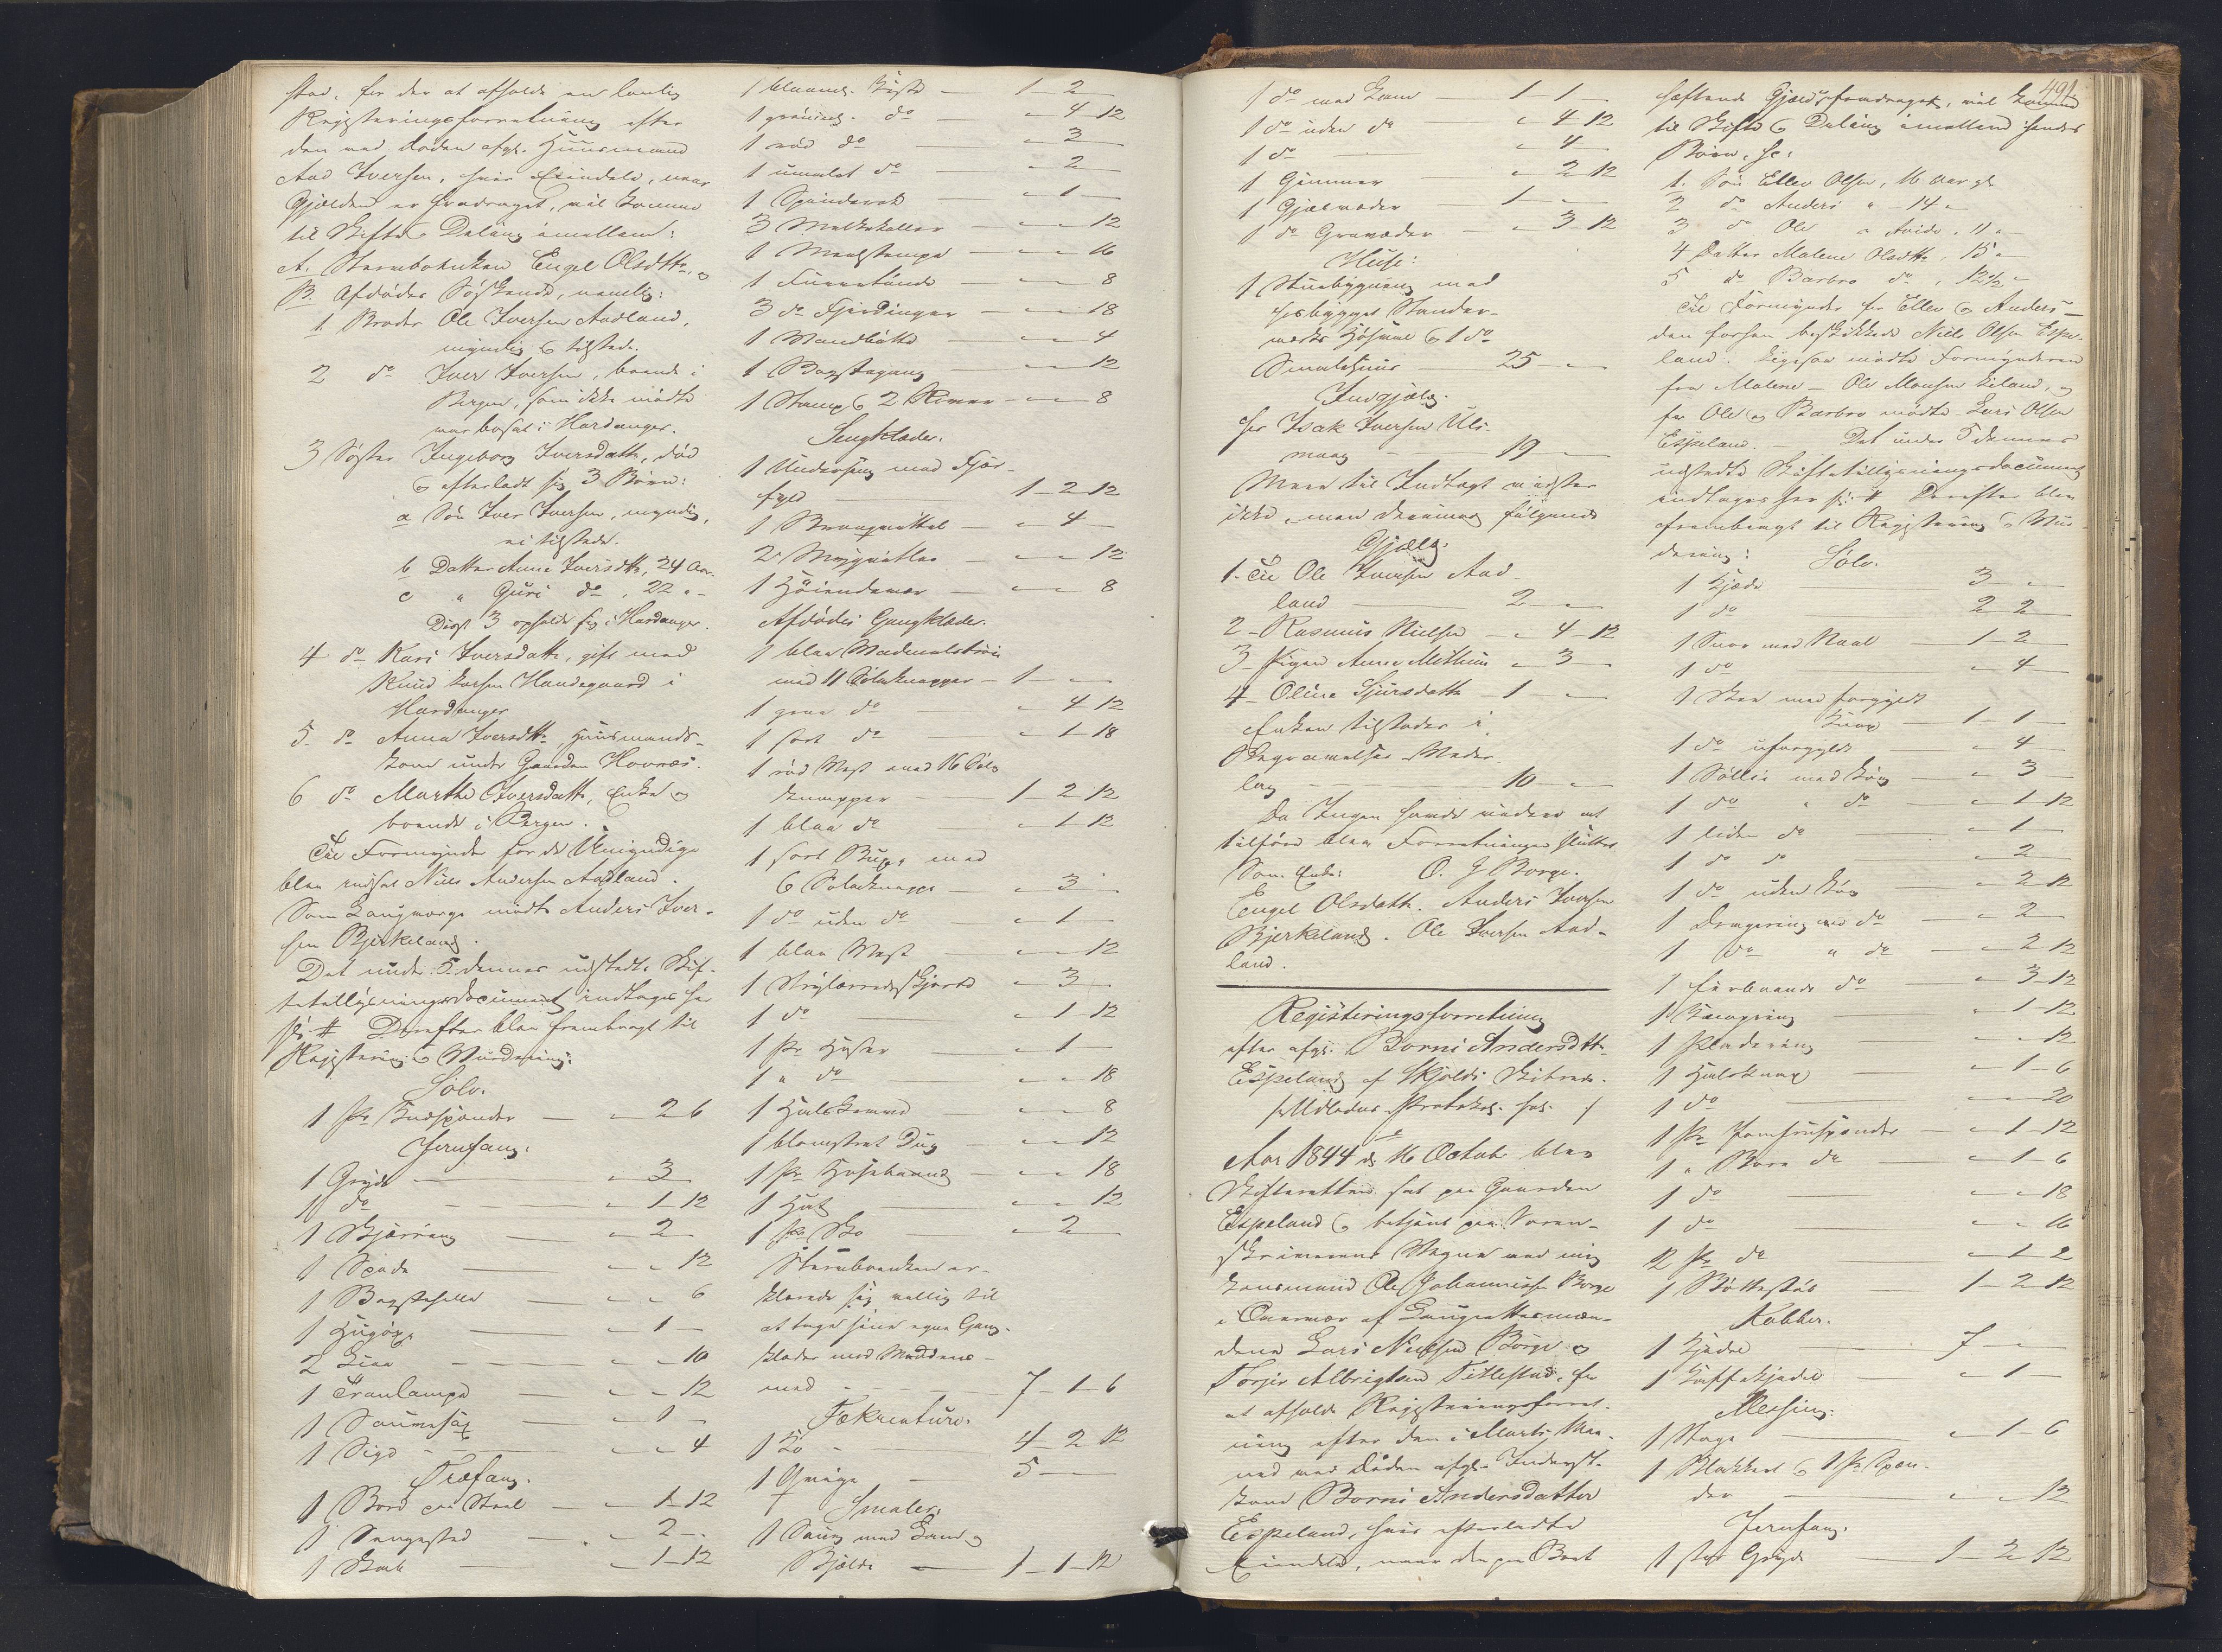 stad, for der at afholde en lovlig
Registeringsforretning efter
den ved Døden afgl. Huusmand
Aad Iversen, hvis Eiendele, naar
Gjælden er fradraget, vil komme
til Skifte & Deling imellem:
A. Stervboenken Engel Olsdttr, og
B. Afdødes Søskende, nemlig:
1. Broder Ole Iversen Aadland,
myndig & tilstede.
2 do Iver Iversen, boende i
Bergen, som ikke mødte
var bosat i Hardanger.
3 Søster Ingeborg Iversdattr, død
& efterladt sig 3 Børn:
a Søn Iver Iversen, myndig,
ei tilstede.
b Datter Anna Iversdttr, 24 Aar
c " Guri do, 22 "
Disse 3 opholde sig i Hardanger.
4 do Kari Iversdattr, gift med
Knud Larsen Handegaard i
Hardanger
5. do Anna Iversdttr, Huusmands-
kone under Gaarden Hovræs.
6 do Marthe Iversdattr, Enke og
boende i Bergen.
Til Formynder for de Umyndige
blev indsat Niels Andersen Aadland.
Som Laugværge mødte Anders Iver-
sen Bjerkeland.
Det under 5 dennes udstedte Skif-
tetillysningsdocument indtages her
sc: # Derefter blev frembragt til
Registering & Vurdering:
Sølv.
1 Pr Knæspænder — " 2 6
Jernfang.
1 Gryde — " 3 —
1 do — " 1 12
1 Skjærring — " 2 —
1 Spade — " " 12
1 Bagstehelle — " " 6
1 Hugøxe — " 1 —
2 Liaa — " " 10
1 Tranlampe — " " 12
1 Saumsax — " 1 —
1 Sigd — " " 4
Træfang.
1 Bord og Stoel — " 1 12
1 Sengested — " 2 —
1 Skab — " 1 12
1 blaamt. Kiste — 1 2 —
1 grønmt. do — " 4 12
1 rød do — " 3 —
1 umalet do — " 2 —
1 Spinderok — " 1 —
3 Melkekoller — " " 12
1 Meelstampe — " " 16
1 — " " 8
3 do Fjerdinger — " " 18
1 Vandbøtte — " " 4
1 Bagstegang — " " 12
1 Stamp & 2 — " " 8
Sengklæder.
1 Underseng med Fjær-
fyld — 1 2 12
1 — " 4 —
2 — " " 12
1 — " " 8
Afdødes Gangklæder.
1 blaa Vadmelstrøie
med 11 Sølvknapper — 1 — "
1 graa do — " 4 12
1 sort do — " 1 18
1 rød Vest med 16 Sølv
knapper — 1 2 12
1 blaa do — " 1 12
1 sort Buxe med
6 Sølvknapper — " 3 —
1 do uden do — " 1 —
1 blaa Vest — " " 12
1 Skjorte — " 3 —
1 do — " 1 12
1 Pr Hoser — " 1 —
1 " do — " " 18
1 — " " 8
1 blomstret Dug — " " 12
1 Pr Hosebaand — " " 18
1 Hat — " " 12
1 Pr Sko — " 2 —
Stervboenken er-
klærede sig villig til
at tage sine egne Gang-
klæder mod
med — 7 1 6
Fækreature.
1 Ko — 4 2 12
1 Qvige — 5 —
Smaler.
1 Sau med Lam &
Bjelde — 1 1 12
1 do med Lam — 1 1 —
1 do uden do — " 4 12
1 do — " 4 —
1 Gimmer — " 2 12
1 Gjælvæder — 1 — "
1 do Graavæder — " 3 12
Huse:
1 Stuebygning med
hosbygget
& 1 do
Smalehuus — 25 — "
Indgjæld.
hos Isak Iversen Ulv-
— 19 — "
Meer til Indtægt vidstes
ikke, men derimod følgende
Gjæld.
1. Til Ole Iversen Aad-
land — 2 — "
2 - Rasmus Nielsen — " 4 12
3 - Pigen Anna — " 3 —
4 - Oline Sjursdattr — 1 — "
Enken tilstodes i
Begravelses Veder-
lag — 10 — "
Da Ingen havde videre at
tilføre blev Forretningen sluttet
Som Enke: O. J Borge.
Engel Olsdattr. Anders Iversen
Bjerkeland. Ole Iversen Aad-
land.
Registeringsforretning
efter afgl. Borni Andersdttr
Espeland af Skjolds Skibrede.
/: Udlodns Protokol. fol. /
Aar 1844 d 16 October blev
Skifteretten sat paa Gaarden
Espeland & betjent paa Soren-
skriverens Vegne ved mig
Lensmand Ole Johannissen Borge
i Overvær af Laugrettesmæn-
dene Lars Nielsen Borge og
Torjer Albrigtsen Titlestad, for
at afholde Registeringsforret-
ning efter den i Marts Maa-
ned ved Døden afgl. Inderst-
kone Borni Andersdatter
Espeland, hvis efterladte
Eiendele, naar den paa Boet
491
hæftende Gjæld fradraget, vil komme
til Skifte & Deling imellem hendes
Børn, sc:
1. Søn Ellev Olsen, 16 Aar gl
2 do Anders " - 14 "
3 do Ole " Aride, 11 "
4 Datter Malene Olsdttr, 15 "
5 do Barbro do, 12½ "
Til Formynder for Ellev og Anders —
den forhen beskikkede Niels Olsen Espe-
land. Ligesaa mødte Formynderen
for Malene — Ole Monsen Liland, og
for Ole og Barbro mødte Lars Olsen
Espeland. — Det under 5 dennes
udstedte Skiftetillysningsdocument
indtages her sc: # Derefter blev
frembragt til Registering & Vur-
dering: Sølv.
1 Kjæde — 3 — "
1 do — 2 2 —
1 Snor med Naal — 1 2 —
1 do — " 4 —
1 Skee med forgyldt
Knap — 1 1 —
1 do uforgyldt — " 4 —
1 Søllie med Løv — " 3 —
1 do " do — " 1 12
1 liden do — " 1 —
1 do do — " 2 —
1 do uden Løv — " 2 12
1 med do — " 2 —
1 do " do — " 2 12
1 do — " 3 12
1 — " 1 12
1 Pladering — " " 12
1 Halsknap — " 1 6
1 do — " " 20
1 Pr — " 1 12
1 " do — " 1 6
1 do — " " 18
1 do — " " 16
12 Pr do — " 1 2
1 — 1 2 12
Kobber.
1 Kjedel — 7 — "
1 Kaffekjedel — " 1 —
Messing.
1 Stage — " 1 6
1 Blækhorn & 1 Pr Spæn-
der — " " 12
Jernfang.
1 stor Gryde — 1 2 12